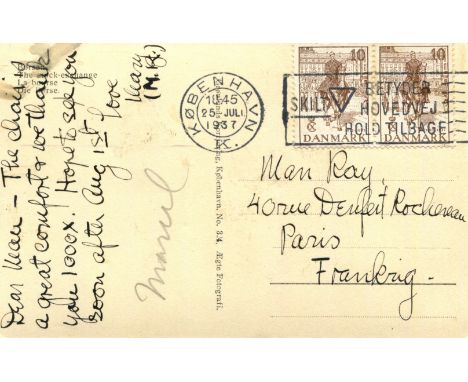 Børsen.
The stock-exchange
La bourse
Die Börse.
Dear Man - The chair is
a great comfort & we thank
you 1000x. Hope to see you
soon after Aug 1st love
Mary
(M.R.)
Marcel
København, No. 3/4. Ægte Fotografi.
KØBENHAVN
18.45
25. JULI
1937
K.
SKILT BETYDER
HOVEDVEJ
HOLD TILBAGE
10
DANMARK
10
DANMARK
Man Ray,
40 rue Denfert Rochereau
Paris
Frankrig.